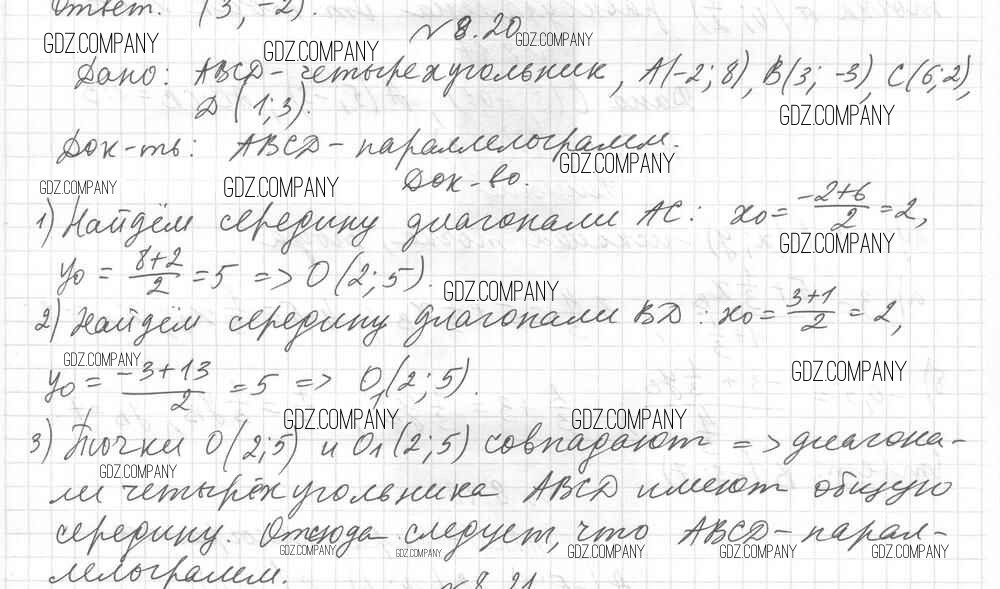 Ответ. (3; -2).
№ 8.20
GDZ.COMPANY GDZ.COMPANY GDZ.COMPANY
Дано: ABCD - четырехугольник, A(-2; 8), B(3; -3), C(6; 2),
D (1; 3).
GDZ.COMPANY
Док-ть: ABCD - параллелограмм.
GDZ.COMPANY
Док-во.
GDZ.COMPANY GDZ.COMPANY
1) Найдём середину диагонали AC: x₀ = (-2+6)/2 = 2,
GDZ.COMPANY
y₀ = (8+2)/2 = 5 => O (2; 5).
GDZ.COMPANY
2) Найдём середину диагонали BD: x₀ = (3+1)/2 = 2,
GDZ.COMPANY GDZ.COMPANY
y₀ = (-3+13)/2 = 5 => O₁(2; 5).
GDZ.COMPANY GDZ.COMPANY
3) Точки O(2; 5) и O₁(2; 5) совпадают => диагона-
GDZ.COMPANY
ли четырёхугольника ABCD имеют общую
середину. Отсюда следует, что ABCD - парал-
GDZ.COMPANY GDZ.COMPANY GDZ.COMPANY GDZ.COMPANY GDZ.COMPANY
лелограмм.
№ 8.21